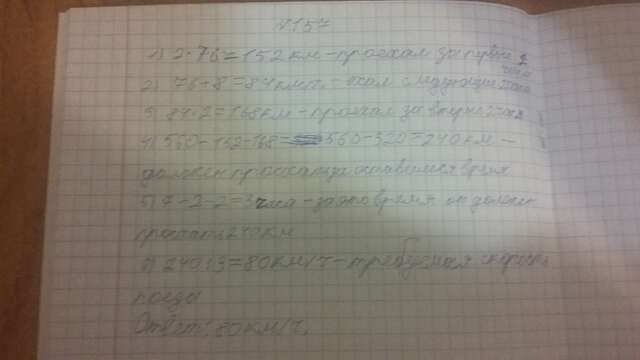 №157
1) 2·76=152 км - проехал за первые 2 часа
2) 76+8=84 км/ч - ехал следующие 2 часа
3) 84·2=168 км - проехал за вторые 2 часа
4) 560-152-168= 560-320=240 км -
должен проехать за оставшееся время
5) 7-2-2=3 часа - за это время он должен
проехать 240 км
6) 240:3=80 км/ч - требуемая скорость
поезда
Ответ: 80 км/ч.